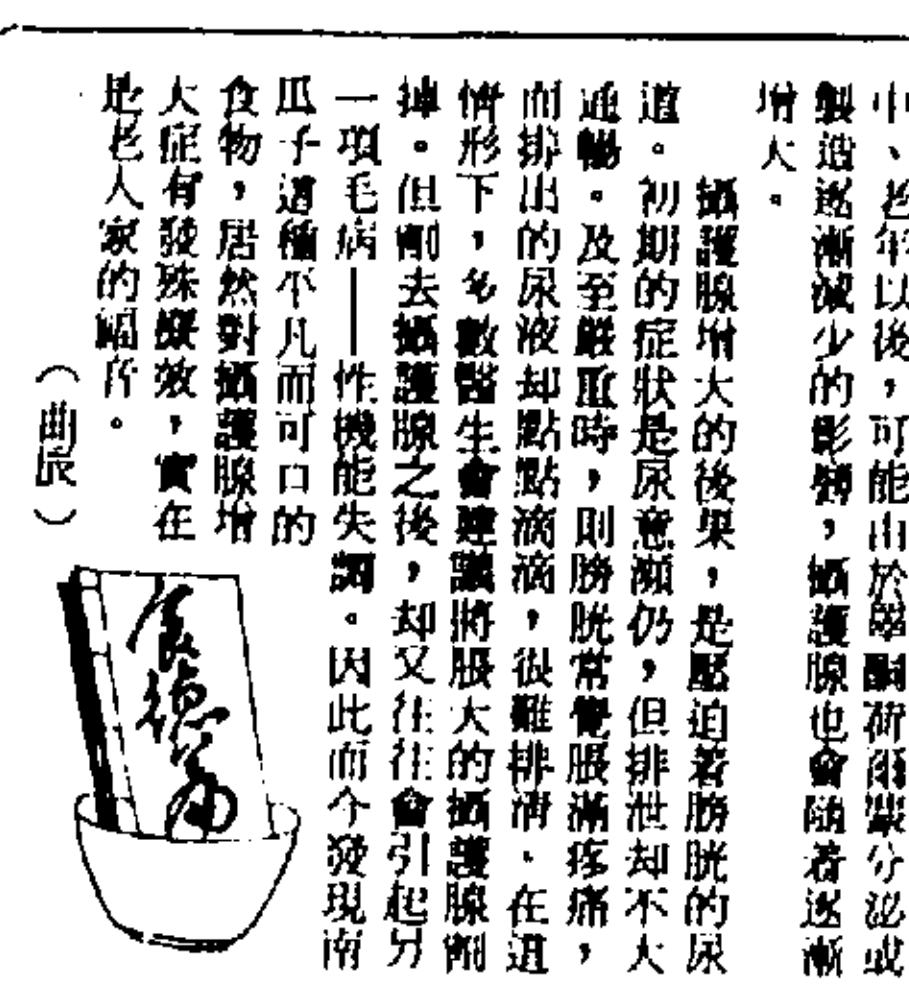 中、老年以後，可能由於睪酮荷爾蒙分泌或
製造逐漸減少的影響，攝護腺也會隨着逐漸
增大。
攝護腺增大的後果，是壓迫着膀胱的尿
道。初期的症狀是尿意頻仍，但排泄却不大
通暢。及至嚴重時，則膀胱常覺脹滿疼痛，
而排出的尿液却點點滴滴，很難排淸。在這
情形下，多數醫生會建議將脹大的攝護腺割
掉。但割去攝護腺之後，却又往往會引起另
一項毛病——性機能失調。因此而今發現南
瓜子這種不凡而可口的
食物，居然對攝護腺增
大症有發殊療效，實在
是老人家的福音。
（曲辰）
食德篇